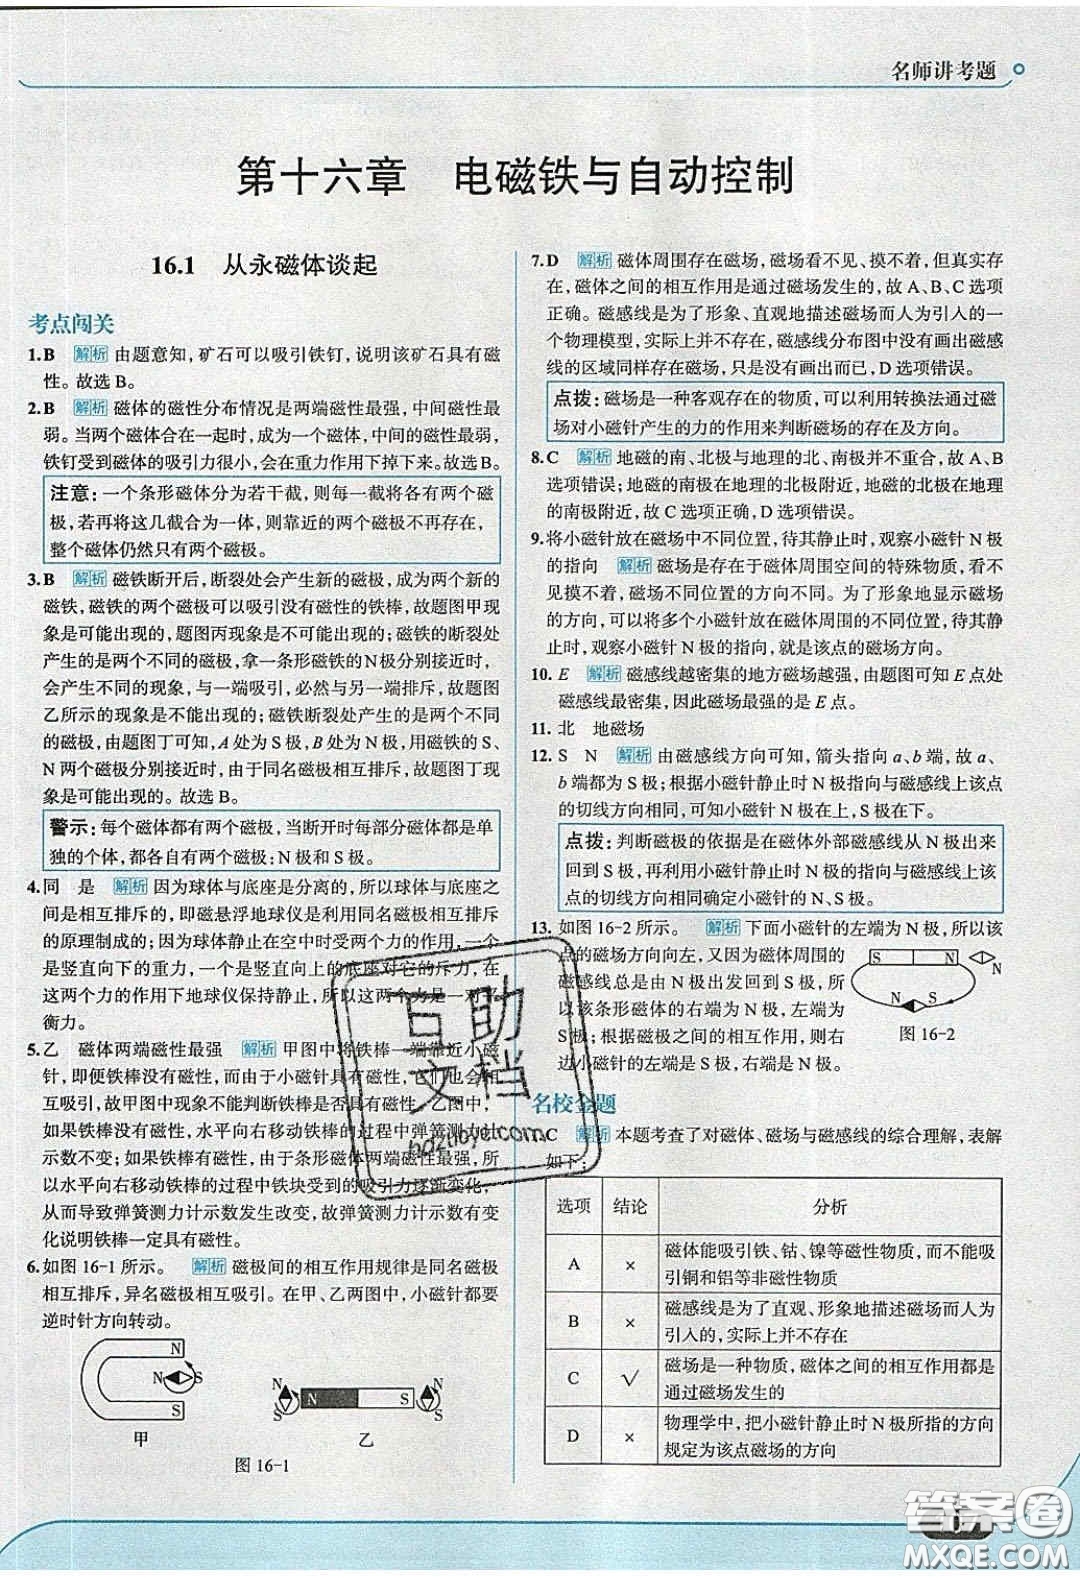 名师讲考题
第十六章 电磁铁与自动控制
16.1 从永磁体谈起
考点闯关
1.B 解析 由题意知,矿石可以吸引铁钉,说明该矿石具有磁
性。故选B。
2.B 解析 磁体的磁性分布情况是两端磁性最强,中间磁性最
弱。当两个磁体合在一起时,成为一个磁体,中间的磁性最弱,
铁钉受到磁体的吸引力很小,会在重力作用下掉下来。故选B。
注意:一个条形磁体分为若干截,则每一截将各有两个磁
极,若再将这几截合为一体,则靠近的两个磁极不再存在,
整个磁体仍然只有两个磁极。
3.B 解析 磁铁断开后,断裂处会产生新的磁极,成为两个新的
磁铁,磁铁的两个磁极可以吸引没有磁性的铁棒,故题图甲现
象是可能出现的,题图丙现象是不可能出现的;磁铁的断裂处
产生的是两个不同的磁极,拿一条形磁铁的N极分别接近时,
会产生不同的现象,与一端吸引,必然与另一端排斥,故题图
乙所示的现象是不能出现的;磁铁断裂处产生的是两个不同
的磁极,由题图丁可知,A处为S极,B处为N极,用磁铁的S、
N两个磁极分别接近时,由于同名磁极相互排斥,故题图丁现
象是可能出现的。故选B。
警示:每个磁体都有两个磁极,当断开时每部分磁体都是单
独的个体,都各自有两个磁极:N极和S极。
4.同 是 解析 因为球体与底座是分离的,所以球体与底座之
间是相互排斥的,即磁悬浮地球仪是利用同名磁极相互排斥
的原理制成的;因为球体静止在空中时受两个力的作用,一个
是竖直向下的重力,一个是竖直向上的底座对它的斥力,在
这两个力的作用下地球仪保持静止,所以这两个力是一对平
衡力。
5.乙 磁体两端磁性最强 解析 甲图中将铁棒一端靠近小磁
针,即便铁棒没有磁性,而由于小磁针具有磁性,它们也会相
互吸引。故甲图中现象不能判断铁棒是否具有磁性。乙图中,
如果铁棒没有磁性,水平向右移动铁棒的过程中弹簧测力计
示数不变;如果铁棒有磁性,由于条形磁体两端磁性最强,所
以水平向右移动铁棒的过程中铁块受到的吸引力逐渐变化,
从而导致弹簧测力计示数发生改变,故弹簧测力计示数有变
化说明铁棒一定具有磁性。
6.如图16-1所示。 解析 磁极间的相互作用规律是同名磁极
相互排斥,异名磁极相互吸引。在甲、乙两图中,小磁针都要
逆时针方向转动。
N
N S
S
甲
N S N S N S
乙
图16-1
7.D 解析 磁体周围存在磁场,磁场看不见、摸不着,但真实存
在,磁体之间的相互作用是通过磁场发生的,故A、B、C选项
正确。磁感线是为了形象、直观地描述磁场而人为引入的一
个物理模型,实际上并不存在,磁感线分布图中没有画出磁感
线的区域同样存在磁场,只是没有画出而已,D选项错误。
点拨:磁场是一种客观存在的物质,可以利用转换法通过磁
场对小磁针产生的力的作用来判断磁场的存在及方向。
8.C 解析 地磁的南、北极与地理的北、南极并不重合,故A、B
选项错误;地磁的南极在地理的北极附近,地磁的北极在地理
的南极附近,故C选项正确,D选项错误。
9.将小磁针放在磁场中不同位置,待其静止时,观察小磁针N极
的指向 解析 磁场是存在于磁体周围空间的特殊物质,看不
见摸不着,磁场不同位置的方向不同。为了形象地显示磁场
的方向,可以将多个小磁针放在磁体周围的不同位置,待其静
止时,观察小磁针N极的指向,就是该点的磁场方向。
10.E 解析 磁感线越密集的地方磁场越强,由题图可知E点处
磁感线最密集,因此磁场最强的是E点。
11.北 地磁场
12.S N 解析 由磁感线方向可知,箭头指向a、b端,故a、
b端都为S极;根据小磁针静止时N极指向与磁感线上该点
的切线方向相同,可知小磁针N极在上,S极在下。
点拨:判断磁极的依据是在磁体外部磁感线从N极出来
回到S极,再利用小磁针静止时N极的指向与磁感线上该
点的切线方向相同确定小磁针的N、S极。
13.如图16-2所示。 解析 下面小磁针的左端为N极,所以该
点的磁场方向向左,又因为磁体周围的
磁感线总是由N极出发回到S极,所
以该条形磁体的右端为N极,左端为
S极;根据磁极之间的相互作用,则右
边小磁针的左端是S极,右端是N极。
S N N
N S
图16-2
名校金题
C 解析 本题考查了对磁体、磁场与磁感线的综合理解,表解
如下:
选项 结论 分析
A × 磁体能吸引铁、钴、镍等磁性物质,而不能吸
引铜和铝等非磁性物质
B × 磁感线是为了直观、形象地描述磁场而人为
引入的,实际上并不存在
C √ 磁场是一种物质,磁体之间的相互作用都是
通过磁场发生的
D × 物理学中,把小磁针静止时N极所指的方向
规定为该点磁场的方向
互助
文档
hozuobyel.com
答案圈
MXQE.COM